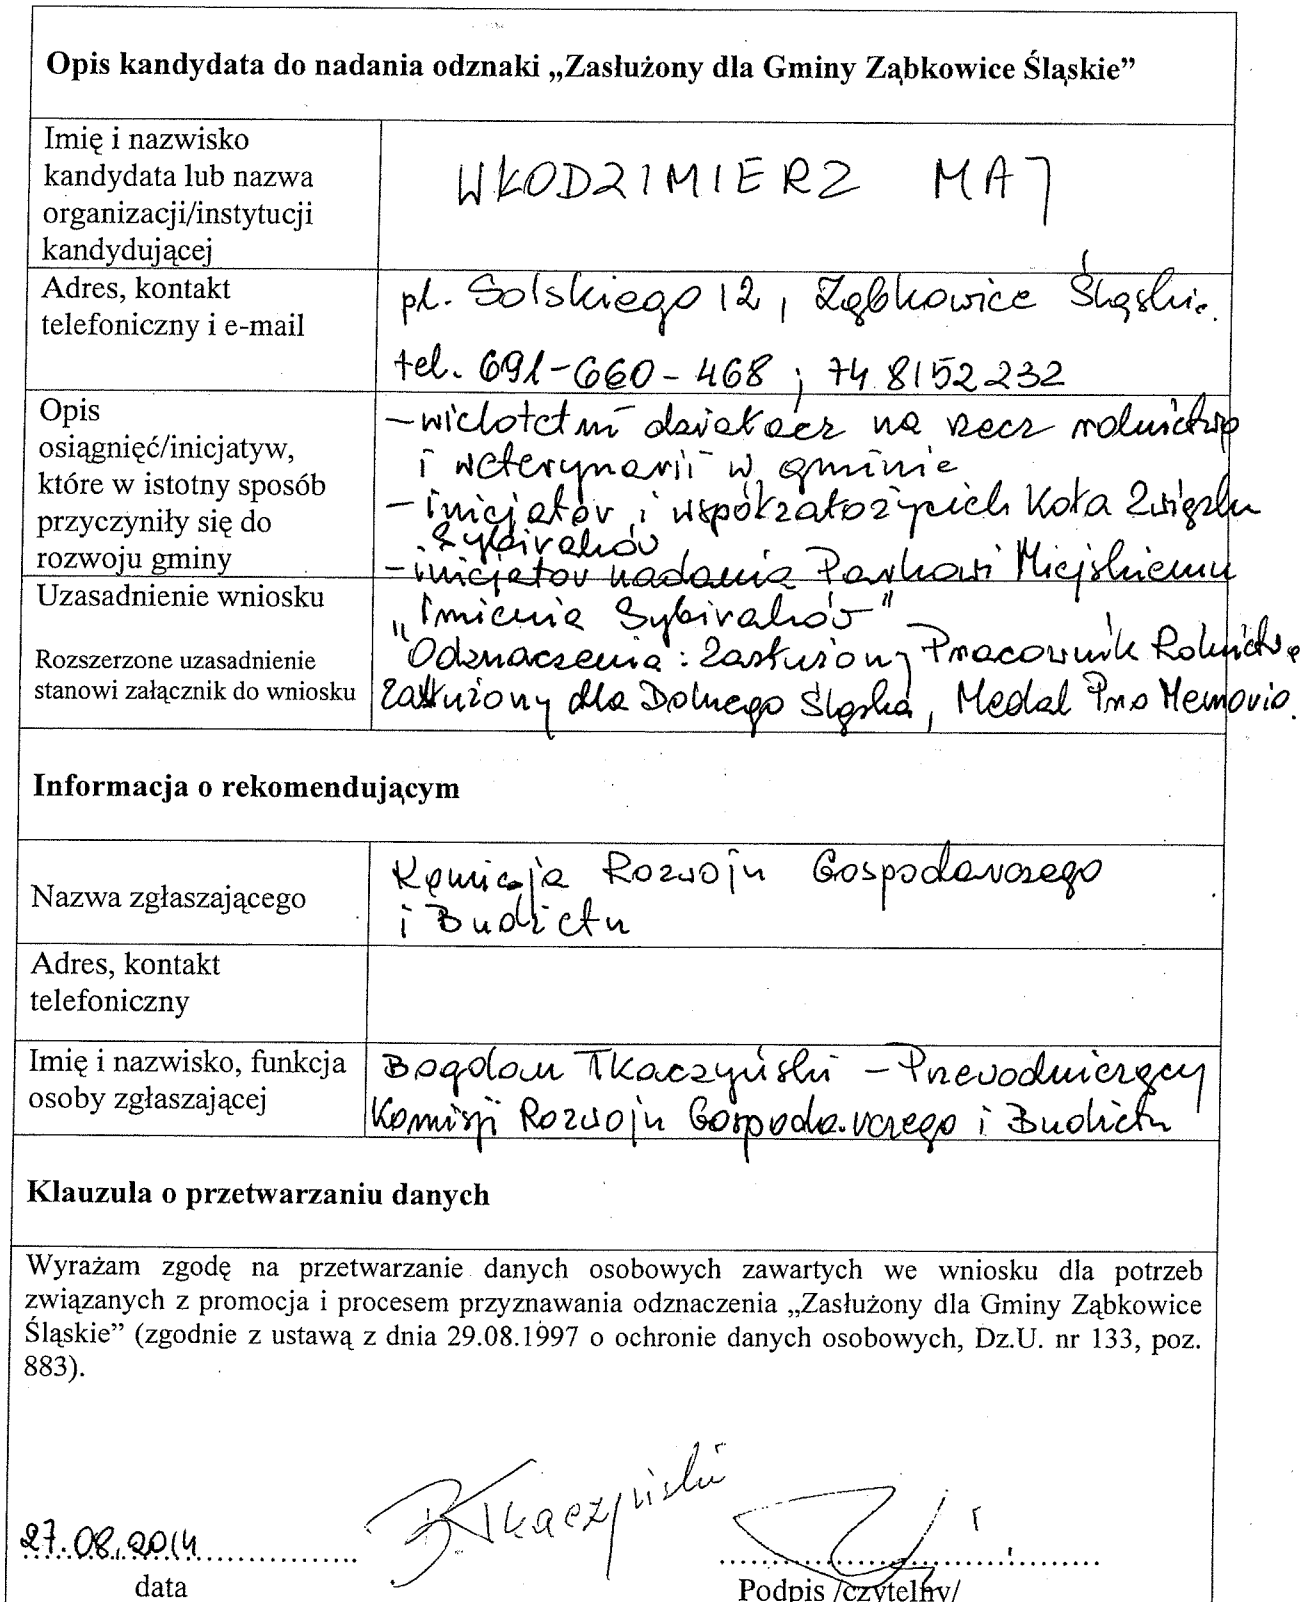 Opis kandydata do nadania odznaki „Zasłużony dla Gminy Ząbkowice Śląskie”
Imię i nazwisko
kandydata lub nazwa
organizacji/instytucji
kandydującej
WŁODZIMIERZ MAJ
Adres, kontakt
telefoniczny i e-mail
pl. Solskiego 12, Ząbkowice Śląskie.
tel. 691-660-468 ; 74 8152232
Opis
osiągnięć/inicjatyw,
które w istotny sposób
przyczyniły się do
rozwoju gminy
- wieloletni działacz na rzecz rolnictwa
i weterynarii w gminie
- inicjator i współzałożyciel Koła Związku
Sybiraków
- inicjator nadania Parkowi Miejskiemu
"Imienia Sybiraków"
Uzasadnienie wniosku
Rozszerzone uzasadnienie
stanowi załącznik do wniosku
Odznaczenia: Zasłużony Pracownik Rolnictwa
Zasłużony dla Dolnego Śląska, Medal Pro Memoria.
Informacja o rekomendującym
Nazwa zgłaszającego
Komisja Rozwoju Gospodarczego
i Budżetu
Adres, kontakt
telefoniczny
Imię i nazwisko, funkcja
osoby zgłaszającej
Bogdan Tkaczyński - Przewodniczący
Komisji Rozwoju Gospodarczego i Budżetu
Klauzula o przetwarzaniu danych
Wyrażam zgodę na przetwarzanie danych osobowych zawartych we wniosku dla potrzeb
związanych z promocja i procesem przyznawania odznaczenia „Zasłużony dla Gminy Ząbkowice
Śląskie” (zgodnie z ustawą z dnia 29.08.1997 o ochronie danych osobowych, Dz.U. nr 133, poz.
883).
B. Tkaczyński
27.08.2014
data
Podpis /czytelny/